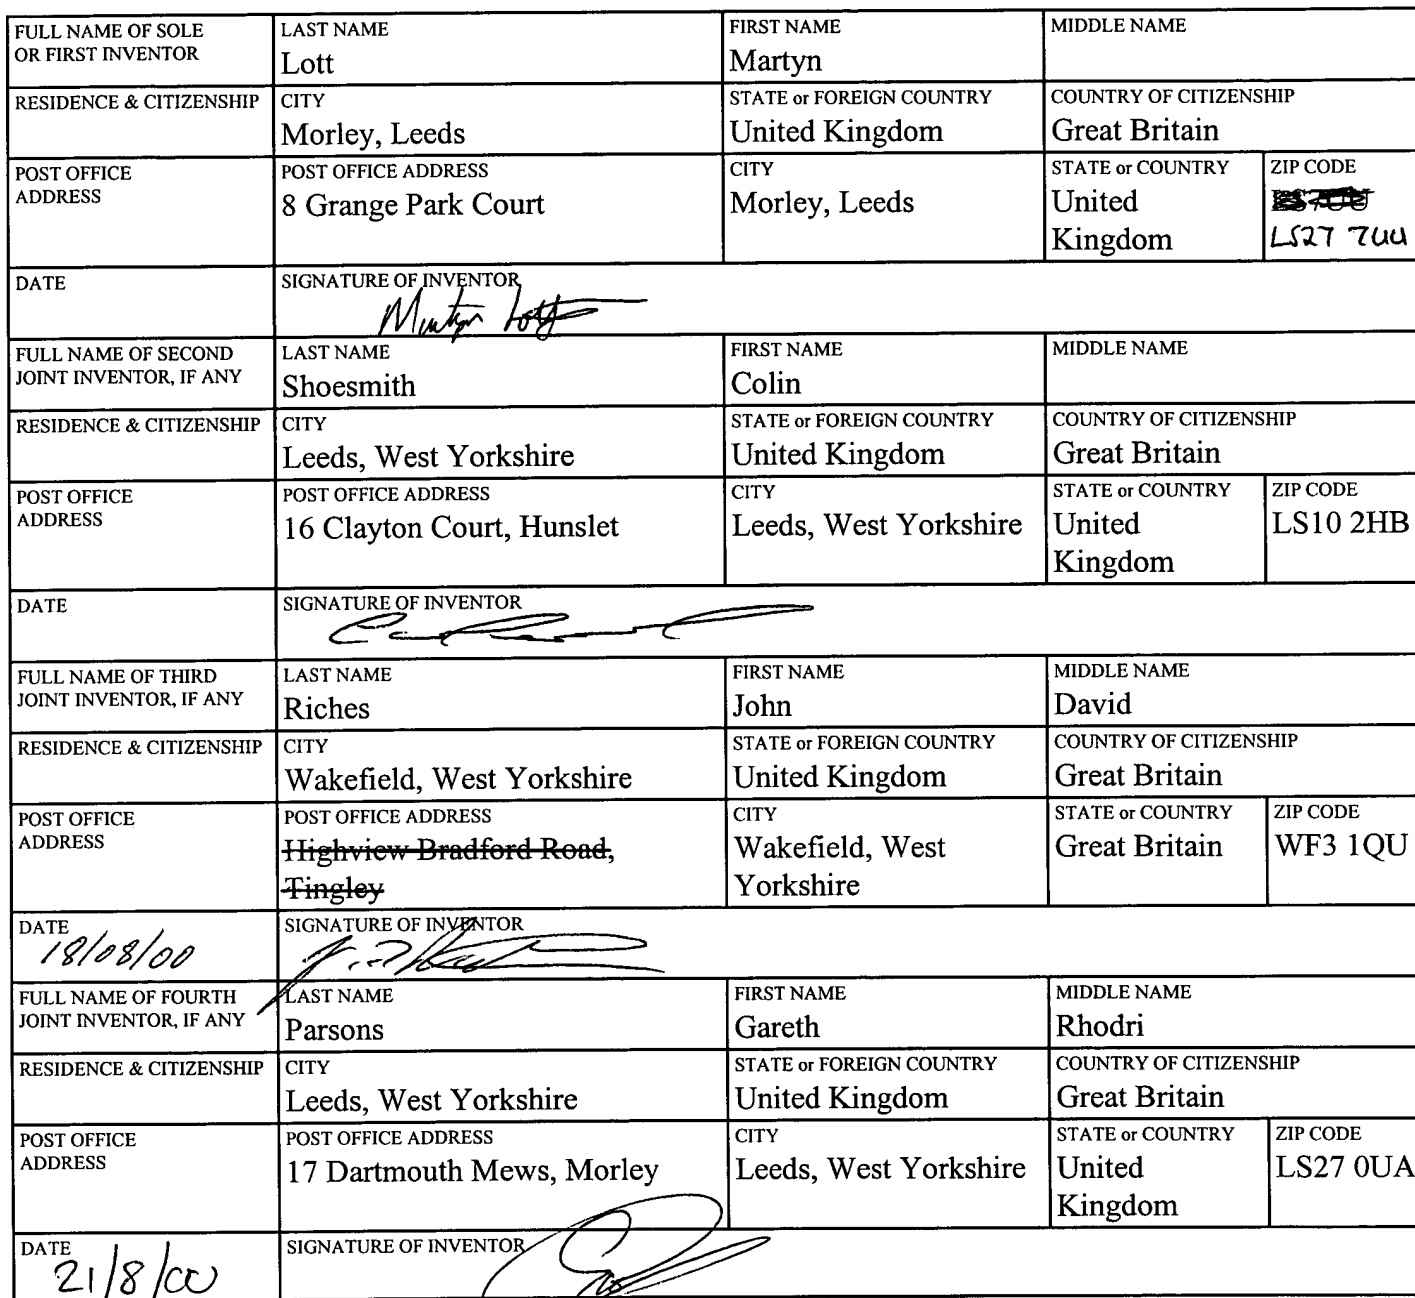 FULL NAME OF SOLE OR FIRST INVENTOR
LAST NAME
Lott
FIRST NAME
Martyn
MIDDLE NAME
RESIDENCE & CITIZENSHIP
CITY
Morley, Leeds
STATE or FOREIGN COUNTRY
United Kingdom
COUNTRY OF CITIZENSHIP
Great Britain
POST OFFICE
ADDRESS
POST OFFICE ADDRESS
8 Grange Park Court
CITY
Morley, Leeds
STATE or COUNTRY
United
Kingdom
ZIP CODE
LS27 7UU
DATE
SIGNATURE OF INVENTOR
Martyn Lott
FULL NAME OF SECOND
JOINT INVENTOR, IF ANY
LAST NAME
Shoesmith
FIRST NAME
Colin
MIDDLE NAME
RESIDENCE & CITIZENSHIP
CITY
Leeds, West Yorkshire
STATE or FOREIGN COUNTRY
United Kingdom
COUNTRY OF CITIZENSHIP
Great Britain
POST OFFICE
ADDRESS
POST OFFICE ADDRESS
16 Clayton Court, Hunslet
CITY
Leeds, West Yorkshire
STATE or COUNTRY
United
Kingdom
ZIP CODE
LS10 2HB
DATE
SIGNATURE OF INVENTOR
FULL NAME OF THIRD
JOINT INVENTOR, IF ANY
LAST NAME
Riches
FIRST NAME
John
MIDDLE NAME
David
RESIDENCE & CITIZENSHIP
CITY
Wakefield, West Yorkshire
STATE or FOREIGN COUNTRY
United Kingdom
COUNTRY OF CITIZENSHIP
Great Britain
POST OFFICE
ADDRESS
POST OFFICE ADDRESS
Highview Bradford Road,
Tingley
CITY
Wakefield, West
Yorkshire
STATE or COUNTRY
Great Britain
ZIP CODE
WF3 1QU
DATE
18/08/00
SIGNATURE OF INVENTOR
FULL NAME OF FOURTH
JOINT INVENTOR, IF ANY
LAST NAME
Parsons
FIRST NAME
Gareth
MIDDLE NAME
Rhodri
RESIDENCE & CITIZENSHIP
CITY
Leeds, West Yorkshire
STATE or FOREIGN COUNTRY
United Kingdom
COUNTRY OF CITIZENSHIP
Great Britain
POST OFFICE
ADDRESS
POST OFFICE ADDRESS
17 Dartmouth Mews, Morley
CITY
Leeds, West Yorkshire
STATE or COUNTRY
United
Kingdom
ZIP CODE
LS27 0UA
DATE
21/8/00
SIGNATURE OF INVENTOR